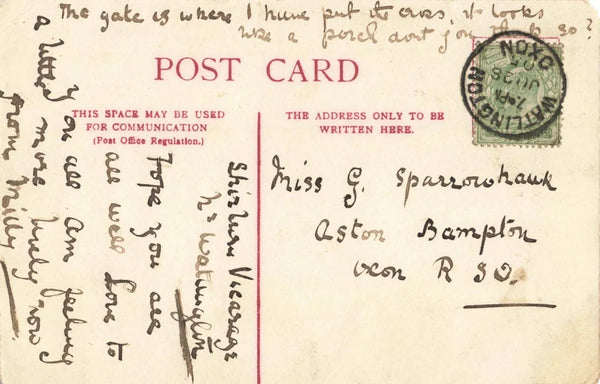 The gate is where I have put the cross, it looks
like a porch dont you think so?
POST CARD
THIS SPACE MAY BE USED
FOR COMMUNICATION
(Post Office Regulation.)
THE ADDRESS ONLY TO BE
WRITTEN HERE.
WATLINGTON
OXON
7 PM
JU 26
05
Miss G. Sparrowhawk
Aston Bampton
Oxon R SO.
Shirburn Vicarage
Nr Watlington
Hope you are
all well Love to
you all am feeling
a little more lively now
from Milly